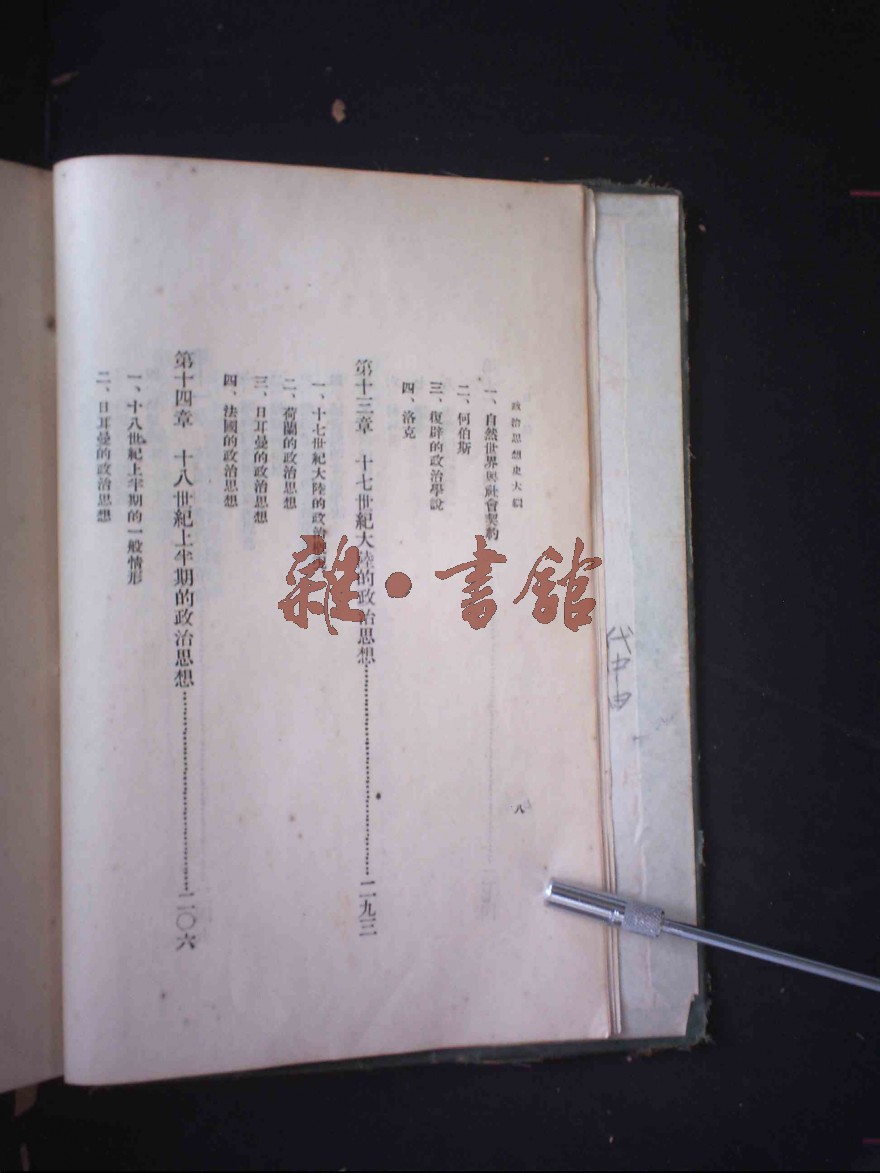 政治思想史大綱
八
一、自然世界與社會契約
二、何伯斯
三、復辟的政治學說
四、洛克
第十三章 十七世紀大陸的政治思想
一、十七世紀大陸的政治
二、荷蘭的政治思想
三、日耳曼的政治思想
四、法國的政治思想
第十四章 十八世紀上半期的政治思想……二〇六
一、十八世紀上半期的一般情形
二、日耳曼的政治思想
雜·書館